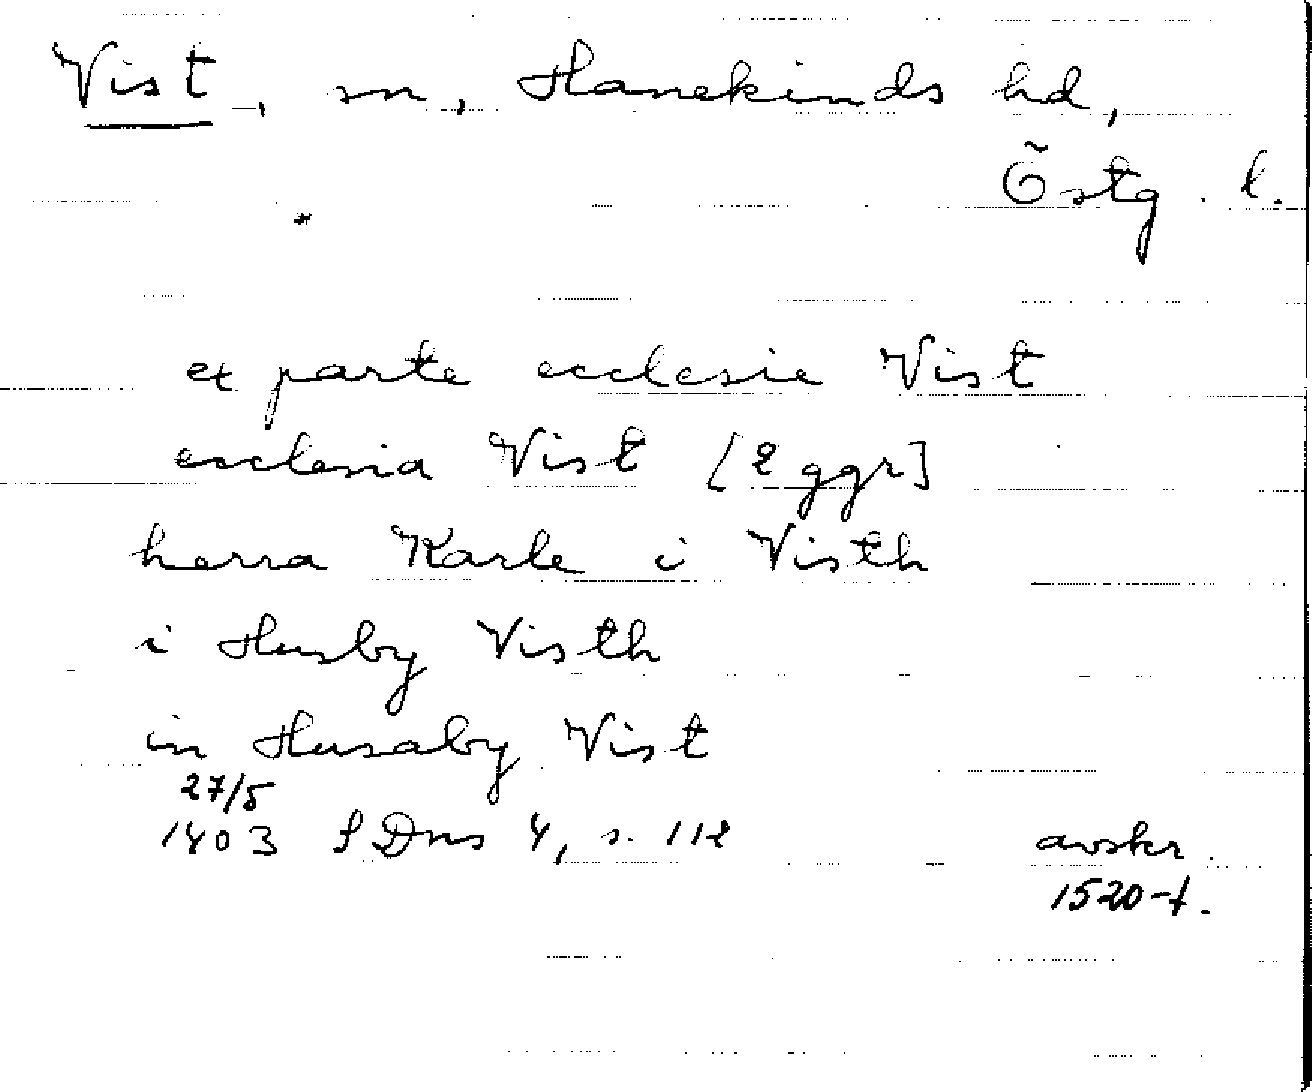 Vist, sn, Hanekinds hd,
Östg. l.
ex parte ecclesie Vist
ecclesia Vist [2 ggr]
herra Karle i Visth
i Husby Visth
in Husaby Vist
27/5
1403 SDns 4, s. 112
avskr.
1520-t.